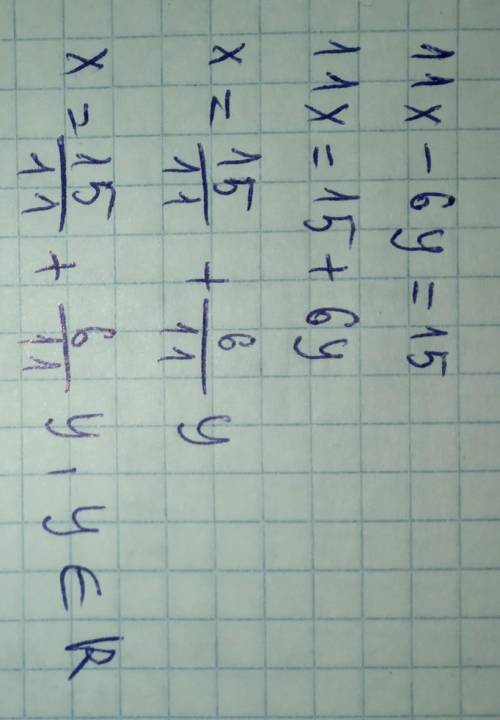 11x - 6y = 15
11x = 15 + 6y
x = 15/11 + 6/11 y
x = 15/11 + 6/11 y, y ∈ ℝ